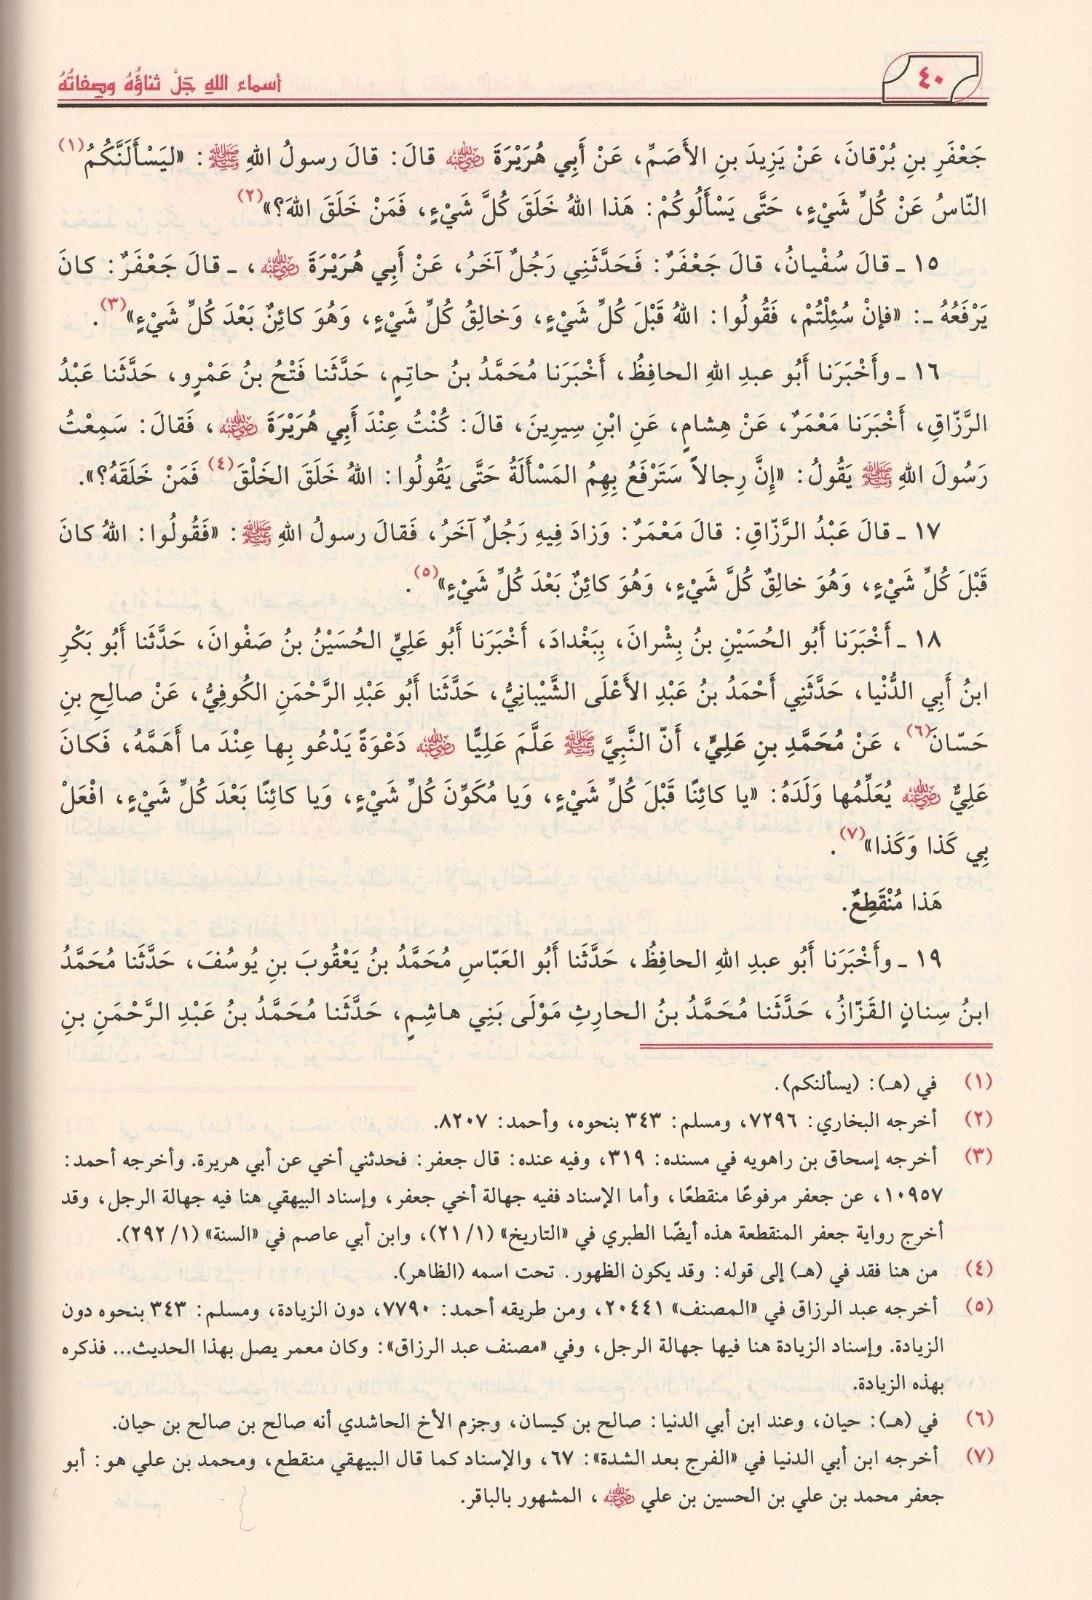 ٤٠
أسماء اللهِ جَلَّ ثناؤُهُ وصِفاتُهُ
جَعْفَرِ بنِ بُرْقانَ، عَنْ يَزِيدَ بنِ الأَصَمِّ، عَنْ أَبِي هُرَيْرَةَ رضي الله عنه قالَ: قالَ رسولُ اللهِ ﷺ: «ليَسْأَلَنَّكُمُ(١)
النّاسُ عَنْ كُلِّ شَيْءٍ، حَتَّى يَسْأَلُوكُمْ: هَذا اللهُ خَلَقَ كُلَّ شَيْءٍ، فَمَنْ خَلَقَ اللهَ؟»(٢)
١٥ ـ قالَ سُفْيانُ، قالَ جَعْفَرٌ: فَحَدَّثَنِي رَجُلٌ آخَرُ، عَنْ أَبِي هُرَيْرَةَ رضي الله عنه، ـ قالَ جَعْفَرٌ: كانَ
يَرْفَعُهُ ـ: «فإنْ سُئِلْتُمْ، فَقُولُوا: اللهُ قَبْلَ كُلِّ شَيْءٍ، وَخالِقُ كُلِّ شَيْءٍ، وَهُوَ كائِنٌ بَعْدَ كُلِّ شَيْءٍ»(٣).
١٦ ـ وأَخْبَرَنا أَبُو عبدِ اللهِ الحافِظُ، أَخْبَرَنا مُحَمَّدُ بنُ حاتِمٍ، حَدَّثَنا فَتْحُ بنُ عَمْرٍو، حَدَّثَنا عَبْدُ
الرَّزّاقِ، أَخْبَرَنا مَعْمَرٌ، عَنْ هِشامٍ، عَنِ ابْنِ سِيرِينَ، قالَ: كُنْتُ عِنْدَ أَبِي هُرَيْرَةَ رضي الله عنه، فَقالَ: سَمِعْتُ
رَسُولَ اللهِ ﷺ يَقُولُ: «إِنَّ رِجالاً سَتَرْفَعُ بِهِمُ المَسْأَلَةُ حَتَّى يَقُولُوا: اللهُ خَلَقَ الخَلْقَ(٤) فَمَنْ خَلَقَهُ؟».
١٧ ـ قالَ عَبْدُ الرَّزّاقِ: قالَ مَعْمَرٌ: وَزادَ فِيهِ رَجُلٌ آخَرُ، فَقالَ رسولُ اللهِ ﷺ: «فَقُولُوا: اللهُ كانَ
قَبْلَ كُلِّ شَيْءٍ، وَهُوَ خالِقُ كُلِّ شَيْءٍ، وَهُوَ كائِنٌ بَعْدَ كُلِّ شَيْءٍ»(٥).
١٨ ـ أَخْبَرَنا أَبُو الحُسَيْنِ بنُ بِشْرانَ، بِبَغْدادَ، أَخْبَرَنا أَبُو عَلِيٍّ الحُسَيْنُ بنُ صَفْوانَ، حَدَّثَنا أَبُو بَكْرِ
ابنُ أَبِي الدُّنْيا، حَدَّثَنِي أَحْمَدُ بنُ عَبْدِ الأَعْلَى الشَّيْبانِيُّ، حَدَّثَنا أَبُو عَبْدِ الرَّحْمَنِ الكُوفِيُّ، عَنْ صالِحِ بنِ
حَسّانَ(٦)، عَنْ مُحَمَّدِ بنِ عَلِيٍّ، أَنّ النَّبِيَّ ﷺ عَلَّمَ عَلِيًّا رضي الله عنه دَعْوَةً يَدْعُو بِها عِنْدَ ما أَهَمَّهُ، فَكانَ
عَلِيٌّ رضي الله عنه يُعَلِّمُها وَلَدَهُ: «يا كائِنًا قَبْلَ كُلِّ شَيْءٍ، وَيا مُكَوِّنَ كُلِّ شَيْءٍ، وَيا كائِنًا بَعْدَ كُلِّ شَيْءٍ، افْعَلْ
بِي كَذا وَكَذا»(٧).
هَذا مُنْقَطِعٌ.
١٩ ـ وأَخْبَرَنا أَبُو عبدِ اللهِ الحافِظُ، حَدَّثَنا أَبُو العَبّاسِ مُحَمَّدُ بنُ يَعْقُوبَ بنِ يُوسُفَ، حَدَّثَنا مُحَمَّدُ
ابنُ سِنانٍ القَزّازُ، حَدَّثَنا مُحَمَّدُ بنُ الحارِثِ مَوْلَى بَنِي هاشِمٍ، حَدَّثَنا مُحَمَّدُ بنُ عَبْدِ الرَّحْمَنِ بنِ
(١) في (هـ): (يسألنكم).
(٢) أخرجه البخاري: ٧٢٩٦، ومسلم: ٣٤٣ بنحوه، وأحمد: ٨٢٠٧.
(٣) أخرجه إسحاق بن راهويه في مسنده: ٣١٩، وفيه عنده: قال جعفر: فحدثني أخي عن أبي هريرة. وأخرجه أحمد:
١٠٩٥٧، عن جعفر مرفوعًا منقطعًا، وأما الإسناد ففيه جهالة أخي جعفر، وإسناد البيهقي هنا فيه جهالة الرجل، وقد
أخرج رواية جعفر المنقطعة هذه أيضًا الطبري في «التاريخ» (٢١/١)، وابن أبي عاصم في «السنة» (٢٩٢/١).
(٤) من هنا فقد في (هـ) إلى قوله: وقد يكون الظهور. تحت اسمه (الظاهر).
(٥) أخرجه عبد الرزاق في «المصنف» ٢٠٤٤١، ومن طريقه أحمد: ٧٧٩٠، دون الزيادة، ومسلم: ٣٤٣ بنحوه دون
الزيادة. وإسناد الزيادة هنا فيها جهالة الرجل، وفي «مصنف عبد الرزاق»: وكان معمر يصل بهذا الحديث... فذكره
بهذه الزيادة.
(٦) في (هـ): حيان، وعند ابن أبي الدنيا: صالح بن كيسان، وجزم الأخ الحاشدي أنه صالح بن صالح بن حيان.
(٧) أخرجه ابن أبي الدنيا في «الفرج بعد الشدة»: ٦٧، والإسناد كما قال البيهقي منقطع، ومحمد بن علي هو: أبو
جعفر محمد بن علي بن الحسين بن علي رضي الله عنه، المشهور بالباقر.